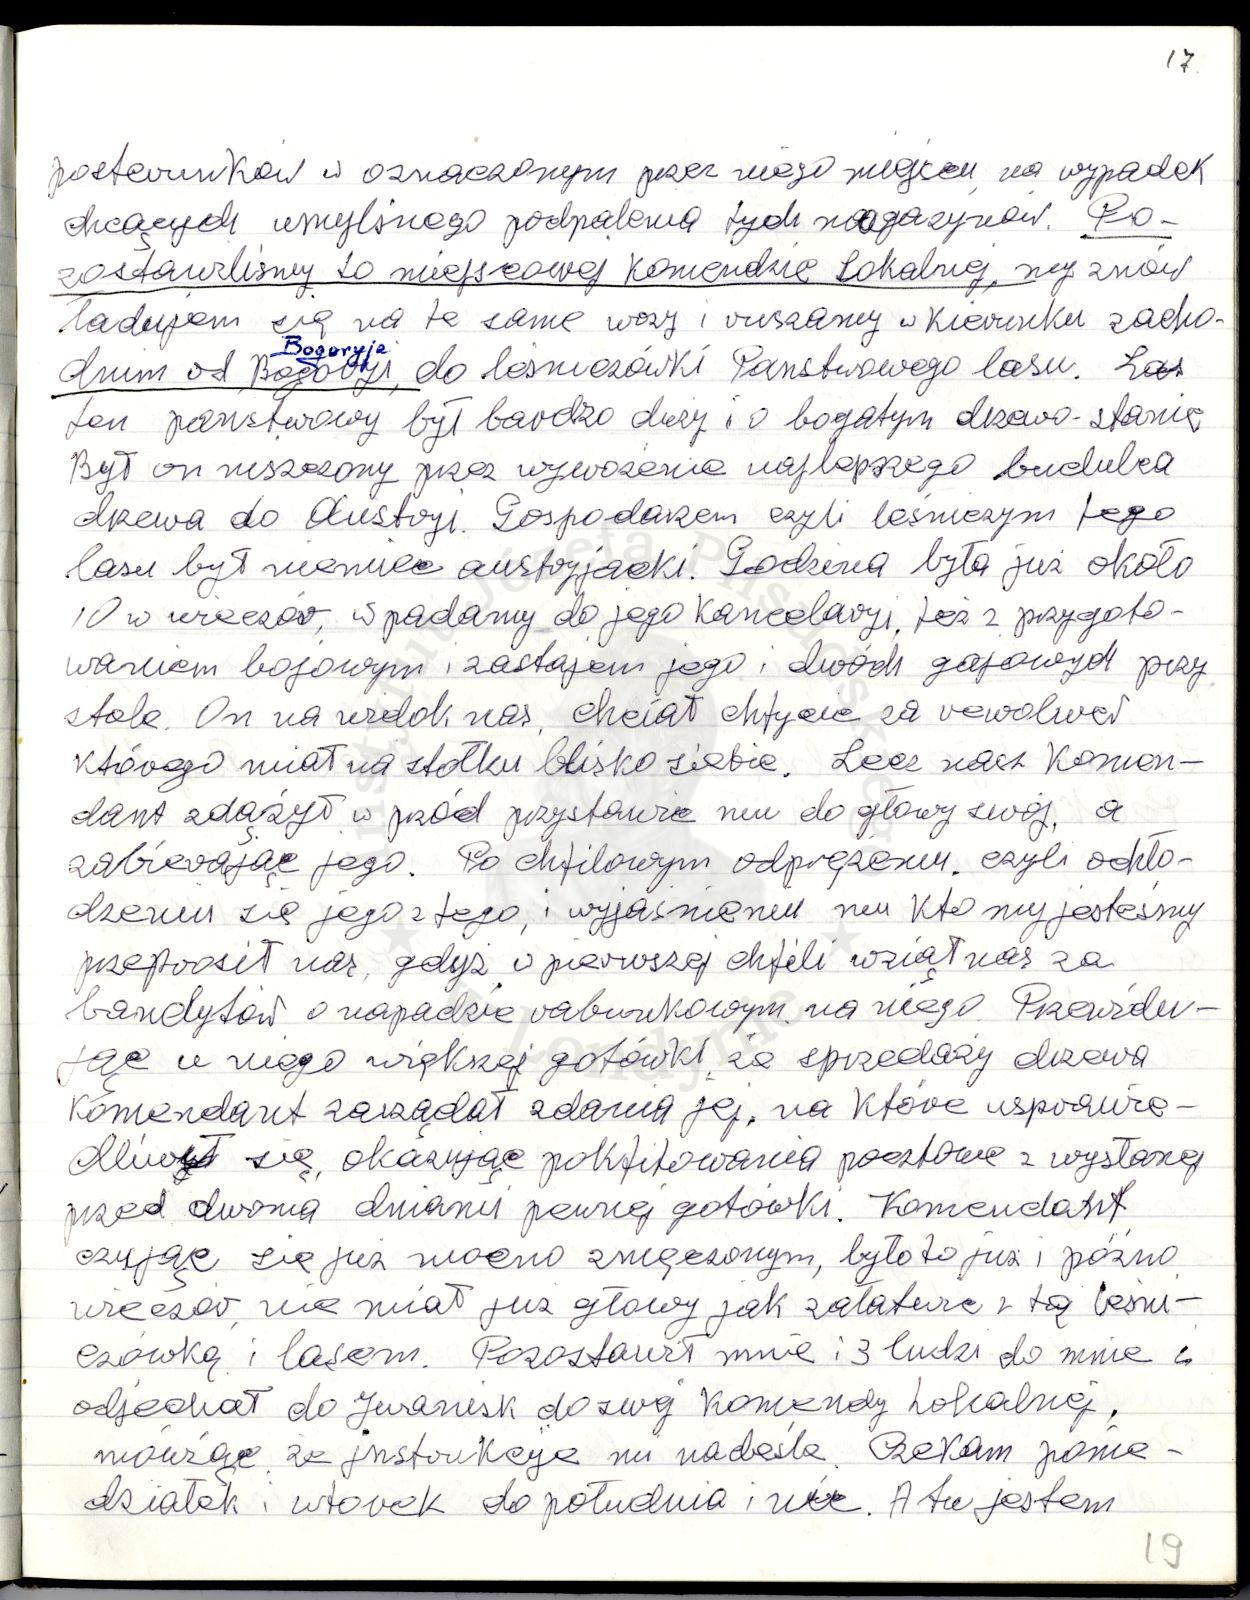 17.
posterunków w oznaczonym przez niego miejscu, na wypadek
chcących umyślnego podpalenia tych magazynów. Po-
zostawiliśmy to miejscowej Komendzie Lokalnej, my znów
ładujem się na te same wozy i ruszamy w kierunku zacho-
Bogoryja
dnim od Bogoryi, do leśniczówki Państwowego lasu. Las
ten państwowy był bardzo duży i o bogatym drzewo-stanie
Był on niszczony przez wywożenie najlepszego budulca
drzewa do Austryi. Gospodarzem czyli leśniczym tego
lasu był niemiec austryjacki. Godzina była już około
10 w wieczór, wpadamy do jego Kancelaryi, też z przygoto-
waniem bojowym i zastajem jego i dwóch gajowych przy
stole. On na widok nas, chciał chfycić za rewolwer
którego miał na stołku blisko siebie. Lecz nasz Komen-
dant zdążył w przód przystawić mu do głowy swój, a
zabierając jego. Po chfilowym odprężeniu, czyli ochło-
dzeniu się jego z tego, i wyjaśnieniu mu kto my jesteśmy
przeprosił nas, gdyż w pierwszej chfili wziął nas za
bandytów o napadzie rabunkowym na niego. Przewidu-
jąc u niego większej gotówki ze sprzedaży drzewa
Komendant zarządał zdania jej, na które usprawie-
dliwył się, okazując pokfitowania pocztowe z wysłanej
przed dwoma dniami pewnej gotówki. Komendant
czując się już mocno zmęczonym, było to już i późno
wieczór, nie miał już głowy jak załatwić z tą leśni-
czówką i lasem. Pozostawił mnie i 3 ludzi do mnie i
odjechał do Iwanisk do swej Komendy Lokalnej,
mówiąc że instrukcje mi nadeśle. Czekam ponie-
działek i wtorek do południa i nic. A tu jestem
19
Instytut Józefa Piłsudskiego
w Londynie